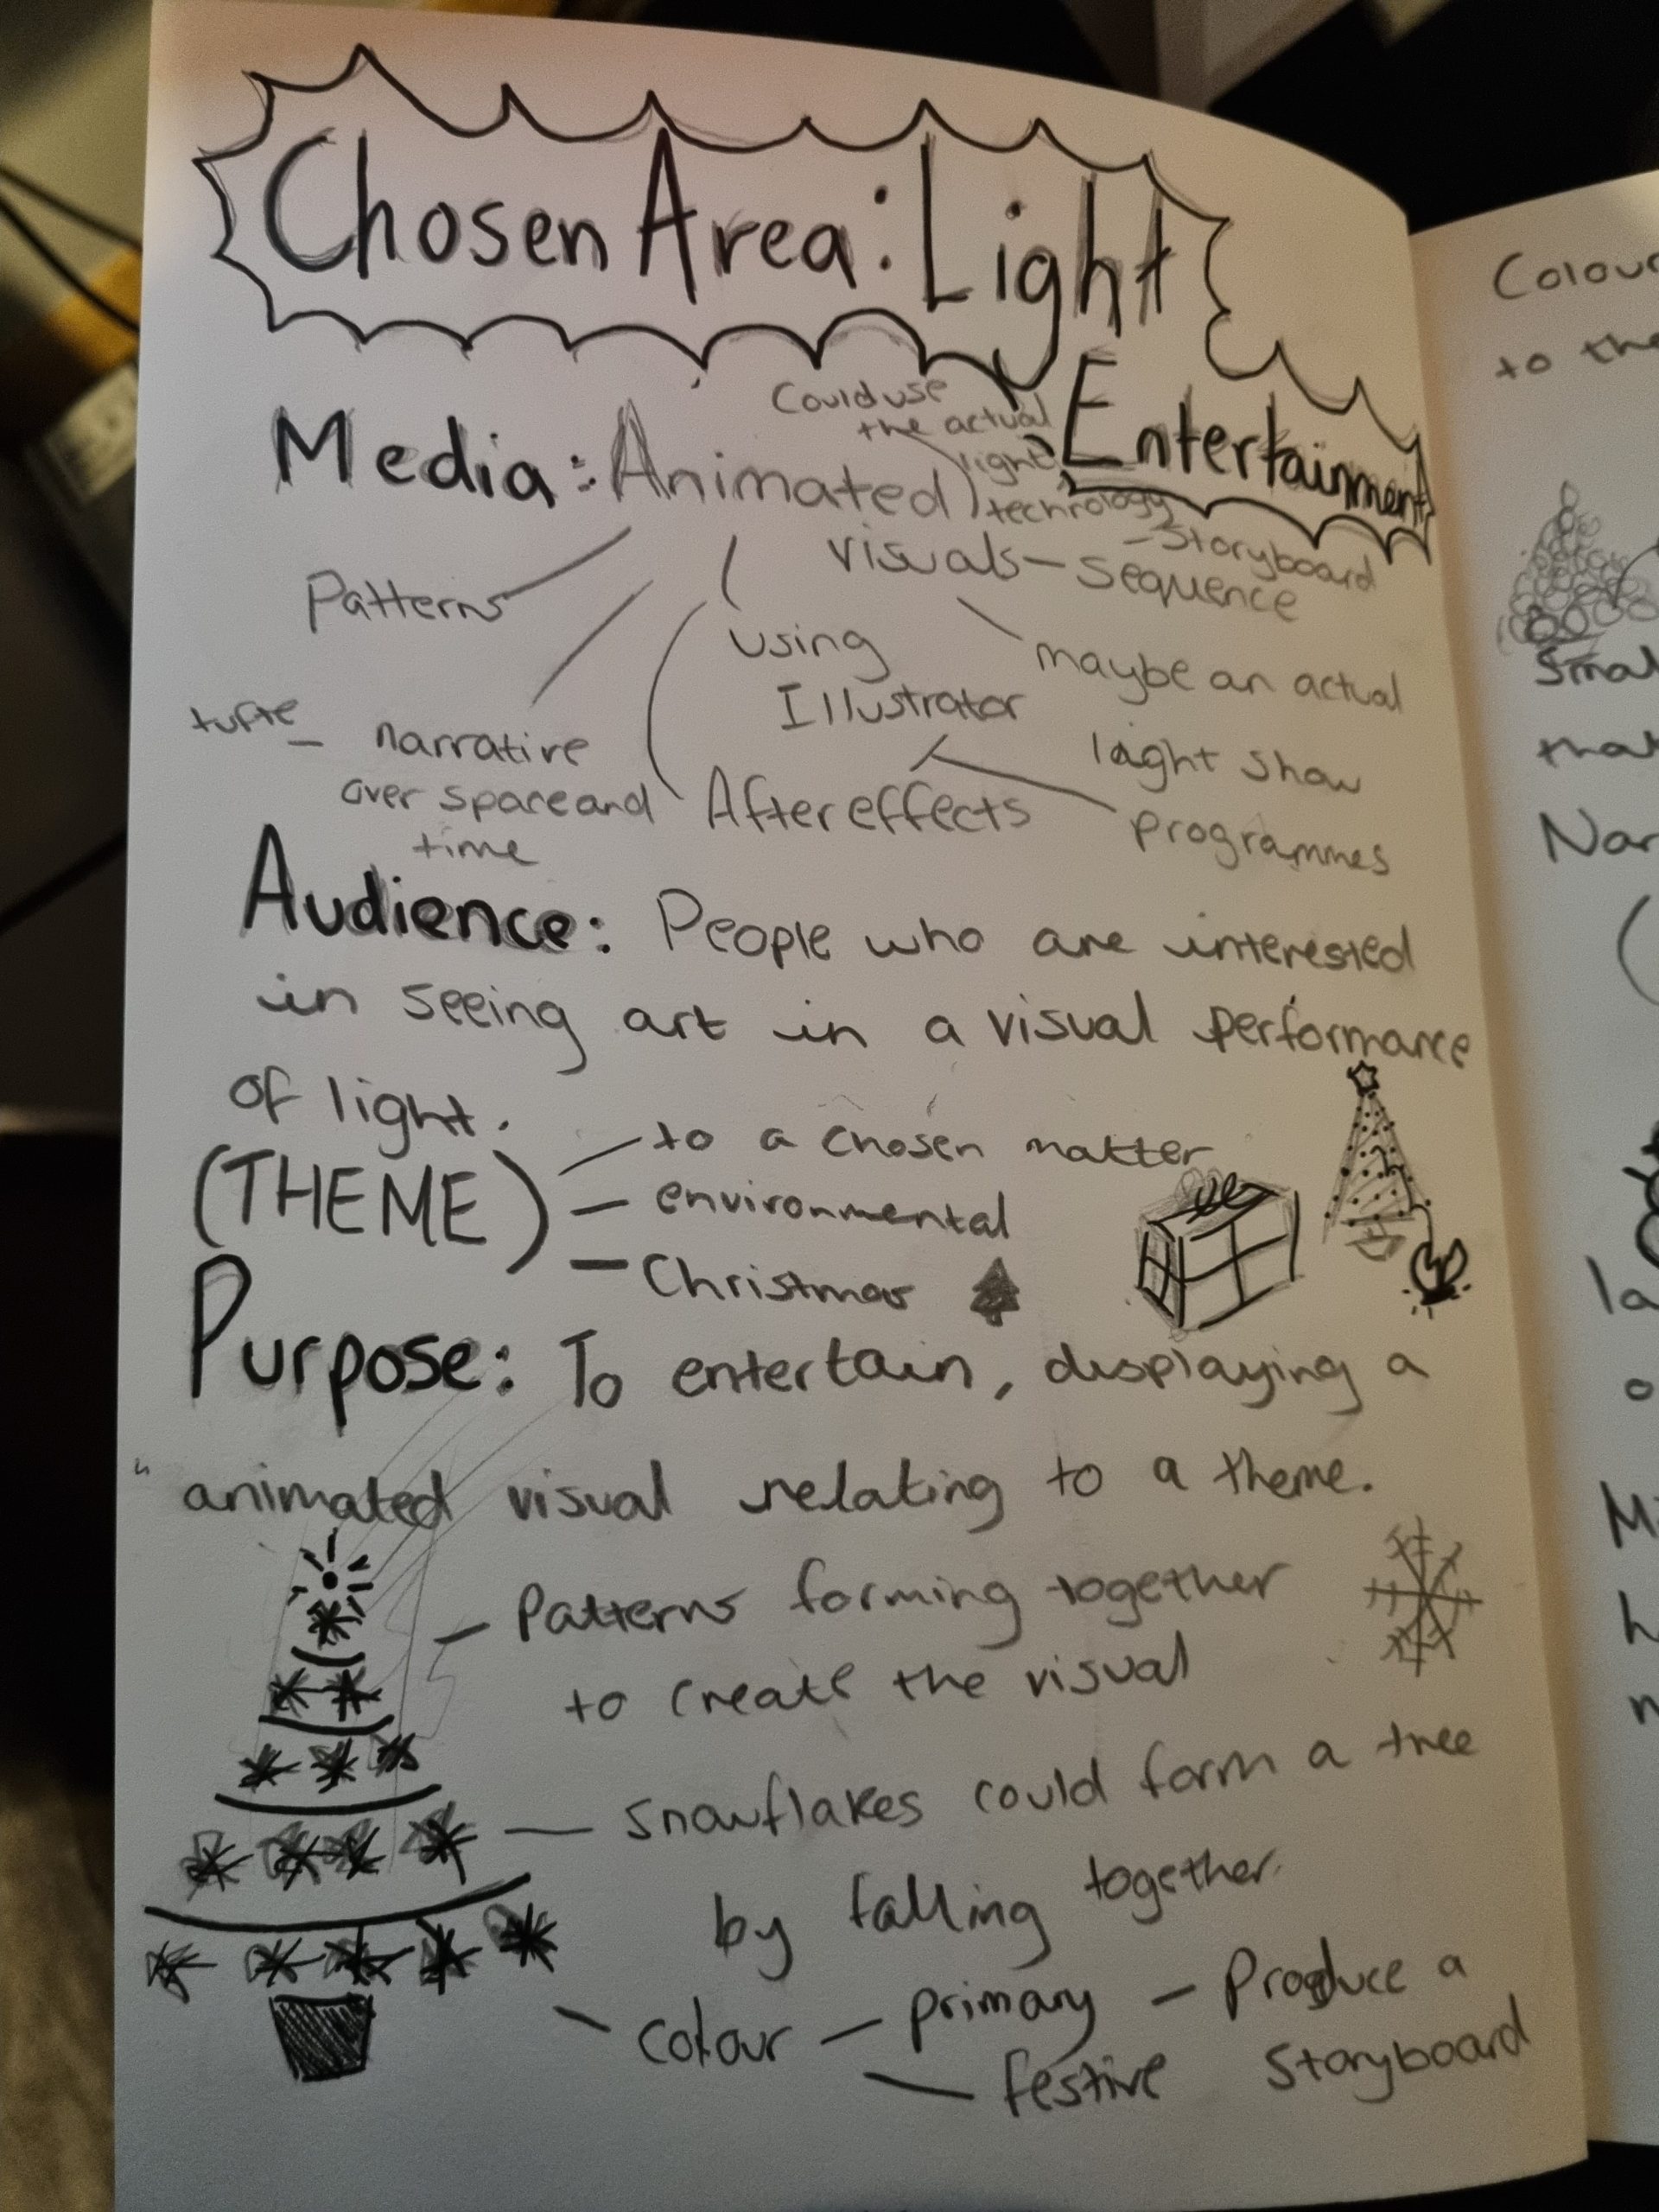 Chosen Area: Light
Entertainment
Media: Animated
visuals - sequence
- Storyboard
Could use
the actual
light
technology
Patterns
using
Illustrator
After effects
programmes
maybe an actual
light show
tufte - narrative
over space and
time
Audience: People who are interested
in seeing art in a visual performance
of light.
(THEME) - to a chosen matter
- environmental
- Christmas
Purpose: To entertain, displaying a
animated visual relating to a theme.
- Patterns forming together
to create the visual
- Snowflakes could form a tree
by falling together.
- colour - primary - Produce a
- festive Storyboard
Colour
to the
Smal
that
Nar
la
o